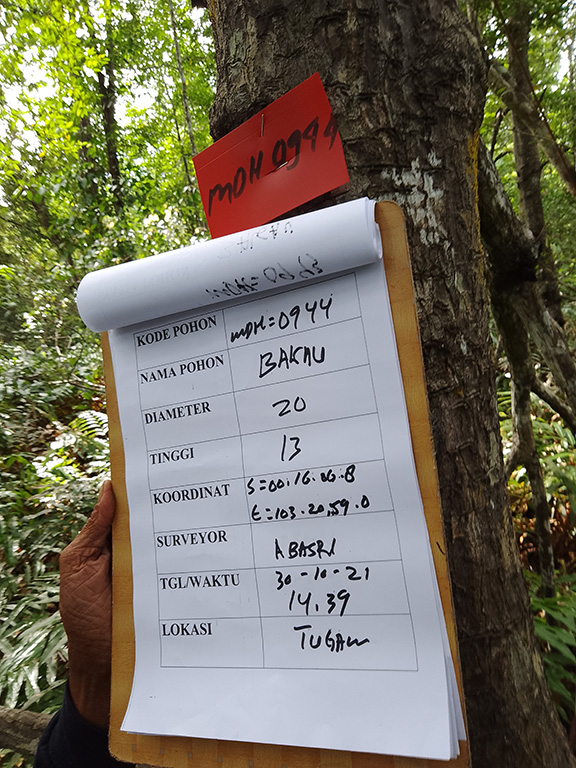 MDH 0944
KODE POHON MDH=0944
NAMA POHON BAKAU
DIAMETER 20
TINGGI 13
KOORDINAT S=00.16.06.8
E=103.20.59.0
SURVEYOR ABASRI
TGL/WAKTU 30-10-21
14.39
LOKASI TUGAW